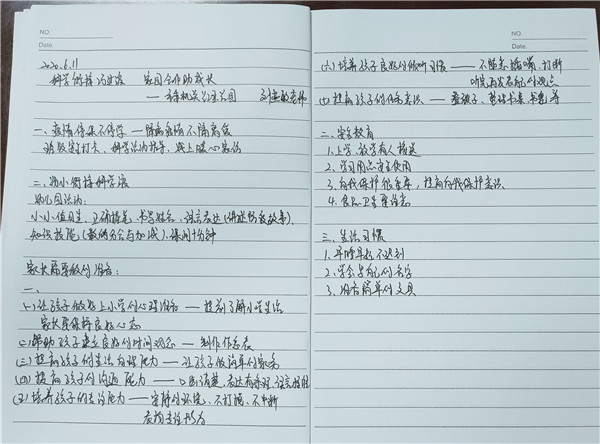 NO.
Date.
2020.6.11
科学衔接巧建设 家园合作助成长
一、疫情停课不停学——隔离疫情不隔离爱
班级定时打卡、科学活动指导、线上暖心家访
二、幼小衔接科学谈
幼儿园活动:
小小值日生、正确握笔、书写姓名、语言表达(讲述
知识技能(数的分合与加减)、课间十分钟
家长需要做的准备:
一、
(一)让孩子做好上小学的心理准备——提前了解小学生活
家长要保持良好心态
(二)帮助孩子建立良好的时间观念——制作作息表
(三)提高孩子的生活自理能力——让孩子做简单的家务
(四)提高孩子的沟通能力——口齿清楚、表达有条理、语言
(五)培养孩子的专注能力——安静的环境、不打扰、不中断
表扬专注行为
NO.
Date.
(六)培养孩子良好的倾听习惯——不随意插嘴、打断
听完再发表自己的观点
(七)提高孩子的任务意识——叠被子、整理书桌书包等
二、安全教育
1.上学、放学有人接送
2.学习用品安全使用
3.自我保护很重要,提高自我保护意识
4.食品卫生要注意
三、生活习惯
1.早睡早起不迟到
2.学会写自己的名字
3.准备简单的文具